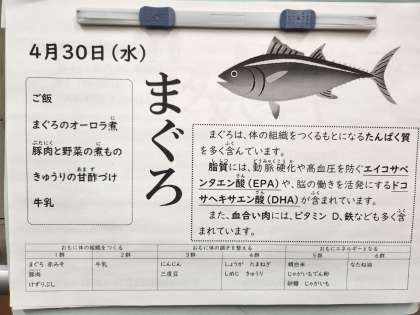 4月30日(水)
まぐろ
ご飯
まぐろのオーロラ煮
豚肉と野菜の煮もの
きゅうりの甘酢づけ
牛乳
まぐろは、体の組織をつくるもとになるたんぱく質
を多く含んでいます。
脂質には、動脈硬化や高血圧を防ぐエイコサペ
ンタエン酸(EPA)や、脳の働きを活発にするドコ
サヘキサエン酸(DHA)が含まれています。
また、血合い肉には、ビタミンD、鉄なども多く含
まれています。
おもに体の組織をつくる おもに体の調子を整える おもにエネルギーとなる
1群 2群 3群 4群 5群 6群
まぐろ 赤みそ 牛乳 にんじん しょうが たまねぎ 精白米 なたね油
豚肉 三度豆 しめじ きゅうり じゃがいもでん粉
けずりぶし 砂糖 じゃがいも